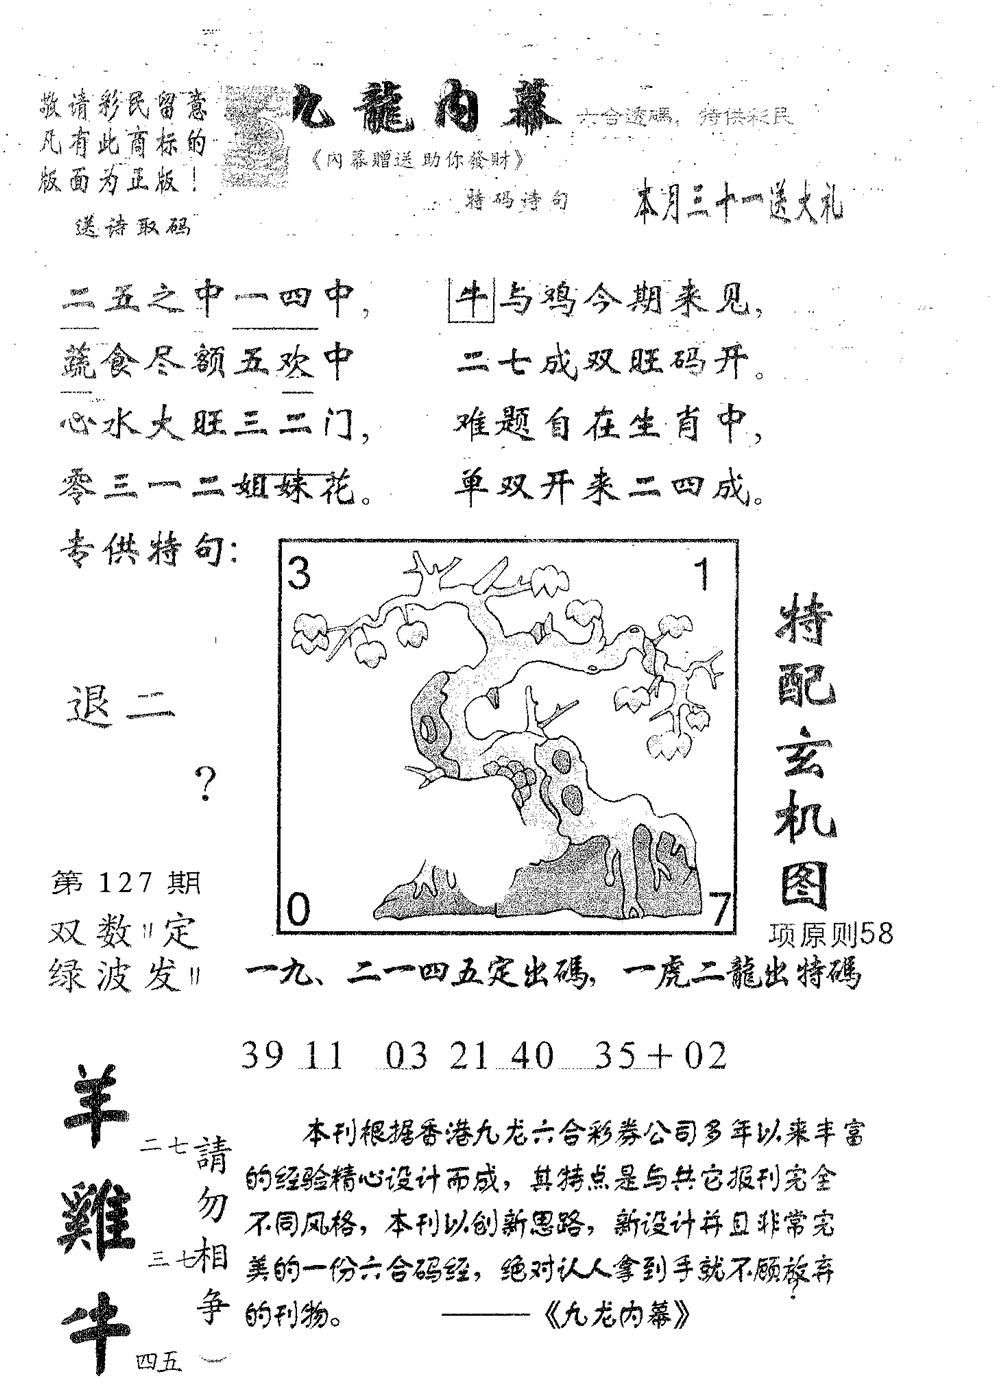 敬请彩民留意
凡有此商标的
版面为正版!
送诗取码
九龍内幕
六合透碼，特供彩民
《内幕赠送 助你發财》
特码诗句
本月三十一送大礼
二五之中一四中,
蔬食尽额五欢中
心水大旺三二门,
零三一二姐妹花。
牛与鸡今期来见,
二七成双旺码开。
难题自在生肖中,
单双开来二四成。
专供特句:
退二
?
3
1
0
7
特配玄机图
项原则58
第127期
双数〃定
绿波发〃
一九、二一四五定出碼, 一虎二龍出特碼
39 11 03 21 40 35+02
羊
二七
雞
三七
牛
四五
請勿相争
本刊根据香港九龙六合彩券公司多年以来丰富
的经验精心设计而成，其特点是与其它报刊完全
不同风格，本刊以创新思路，新设计并且非常完
美的一份六合码经，绝对认人拿到手就不顾放弃
的刊物。 ———《九龙内幕》